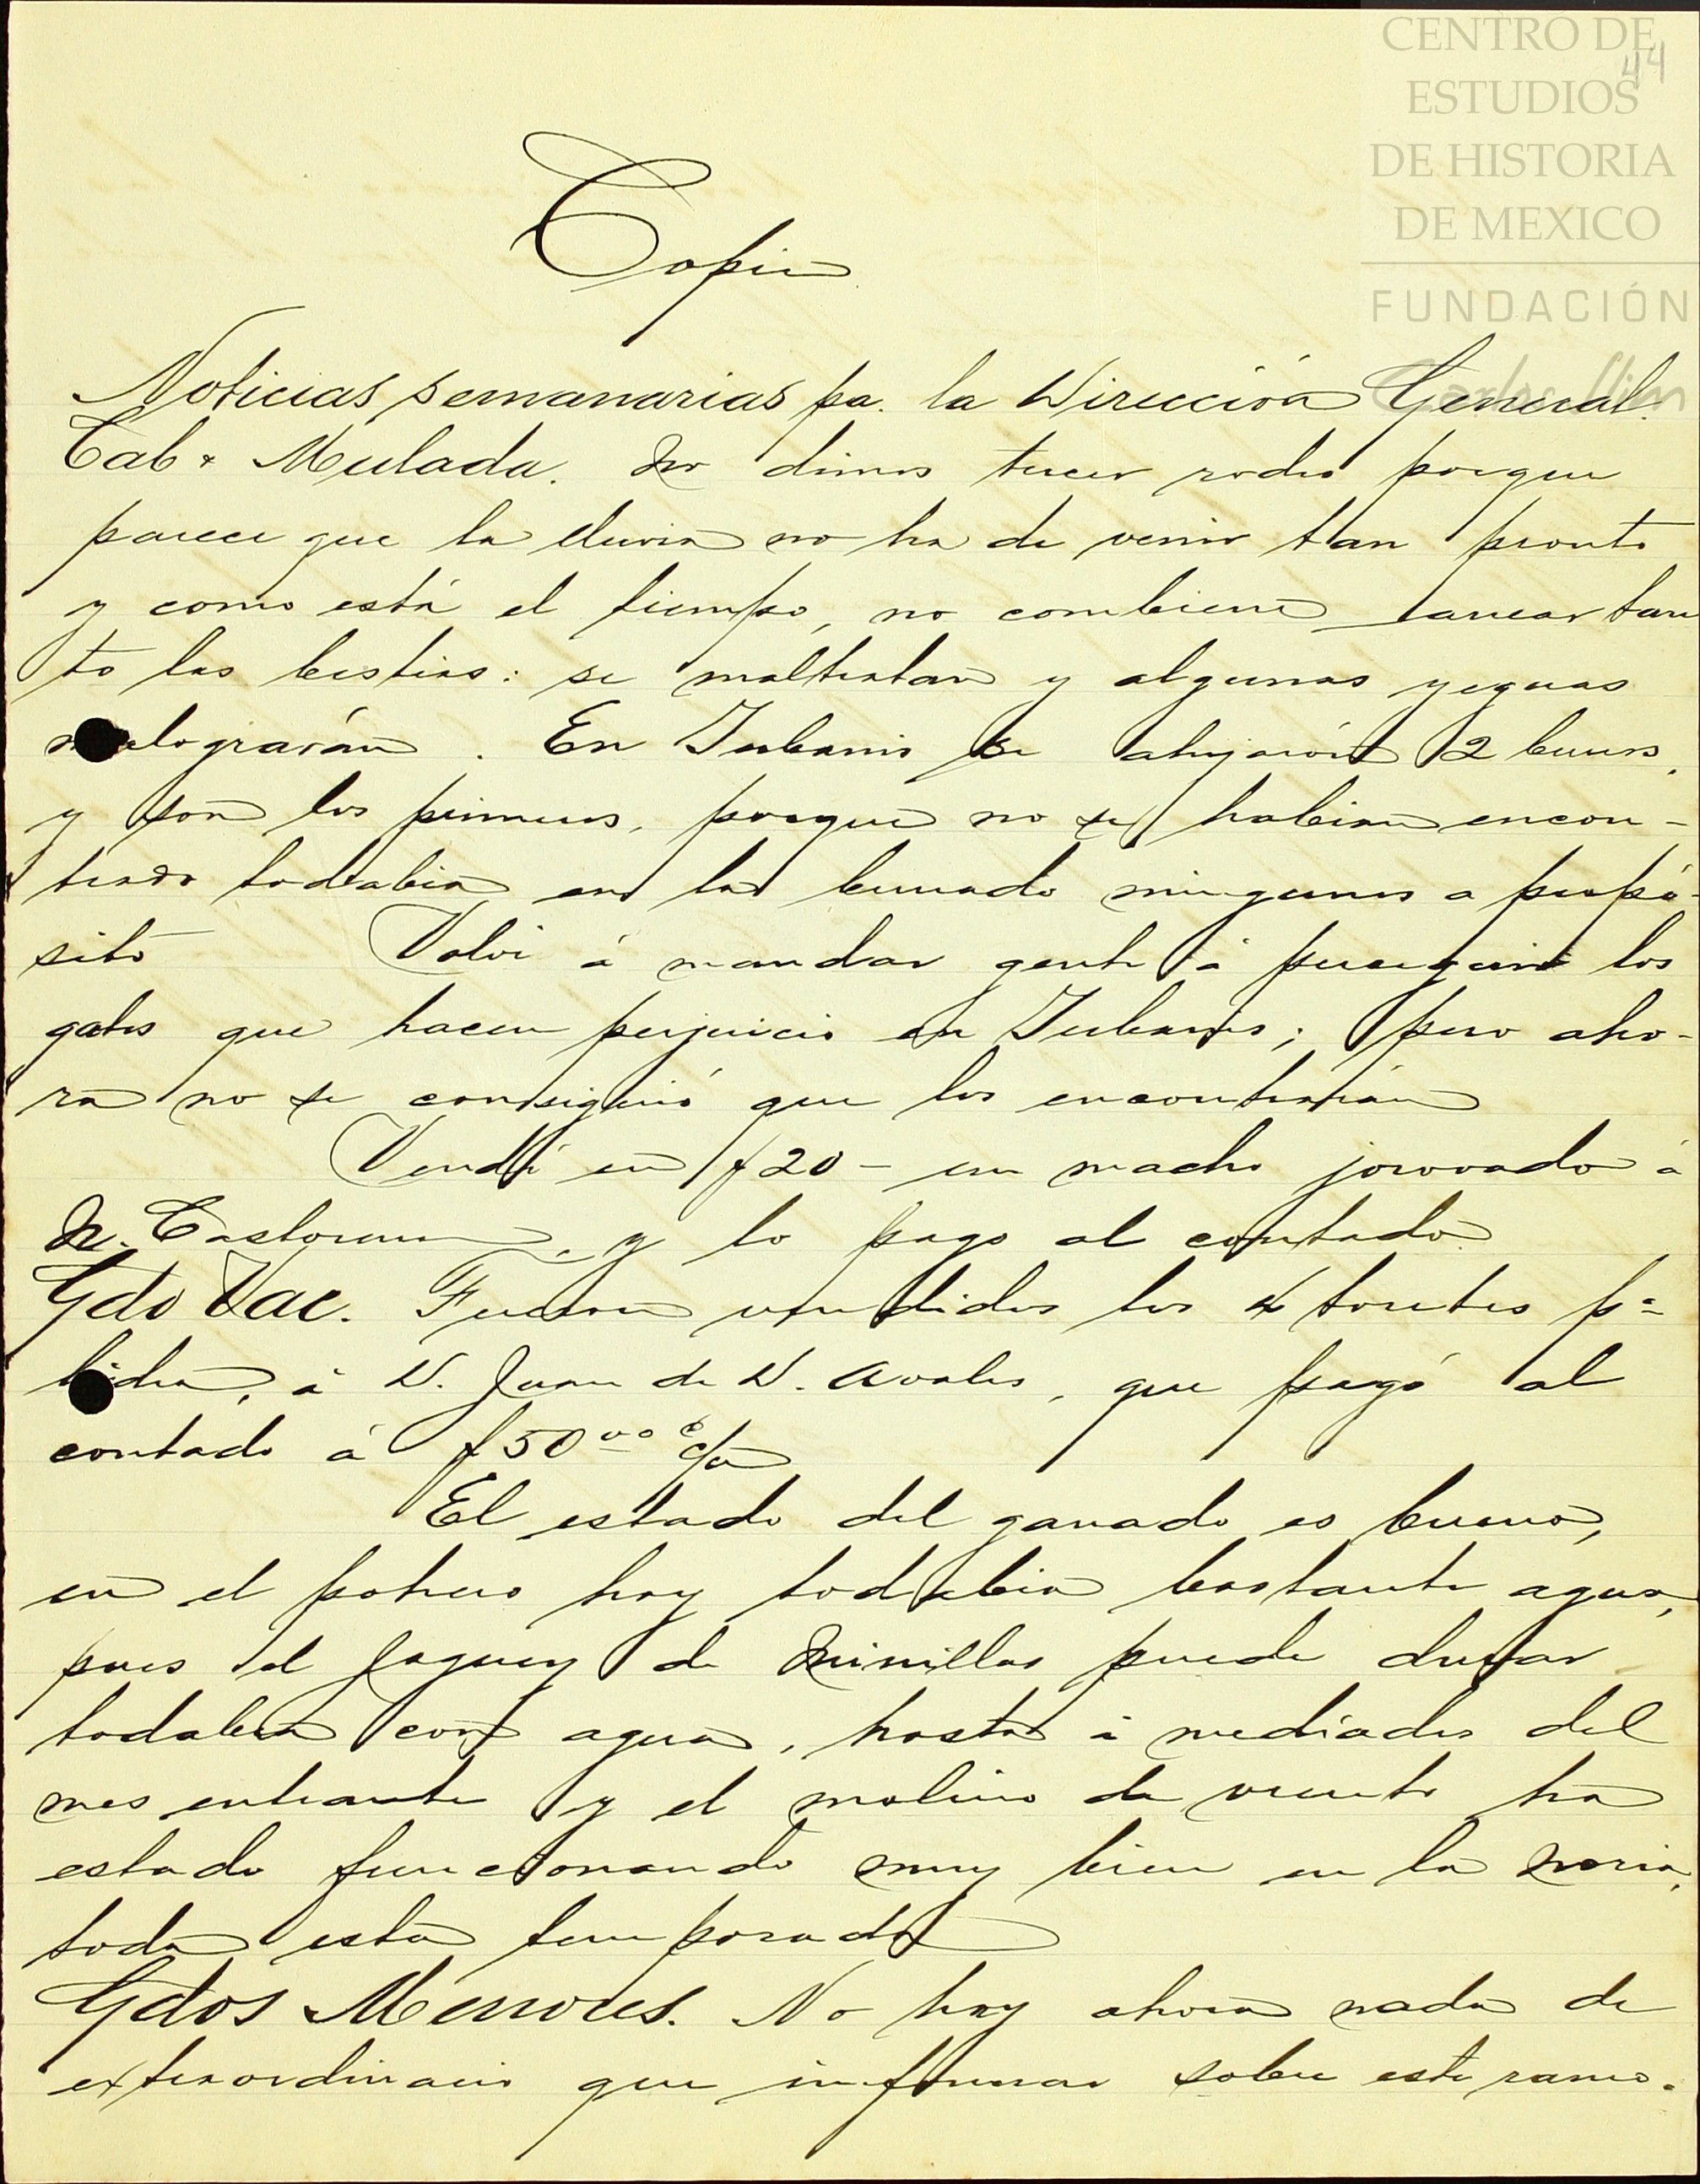 CENTRO DE
ESTUDIOS
DE HISTORIA
DE MEXICO
FUNDACIÓN
Carlos Slim
44
Copia
Noticias semanarias pa. la Dirección General.
Cab. Mulada. No dimos tercer rodeo porque
parece que la lluvia no ha de venir tan pronto
y como está el tiempo, no combiene tan
to las bestias: se maltratan y algunas yeguas
malograrán. En se ahijarón 2 burros,
y son los primeros, porque no se habian encon-
trado todabia en la burrada ningunos a propó-
sito Volvi á mandar gente á perseguir los
gatos que hacen perjuicio en ; pero aho-
ra no se consiguió que los encontrarán
Vendí en $20- un macho jorovado á
N. Castorena y lo pago al contado
Gdo Vac. Fueron vendidos los toretes pa
lidia, á D. Juan de D. Avalos, que pagó al
contado á $50 00 c/u
El estado del ganado es bueno,
en el potrero hay todabia bastante agua,
pues el Jaguey de Minillas puede durar
todabia con agua, hasta á mediados del
mes entrante y el molino de viento ha
estado funcionando muy bien en la noria,
toda esta temporada
Gdos Menores. No hay ahora nada de
extraordinario que informar sobre este ramo.